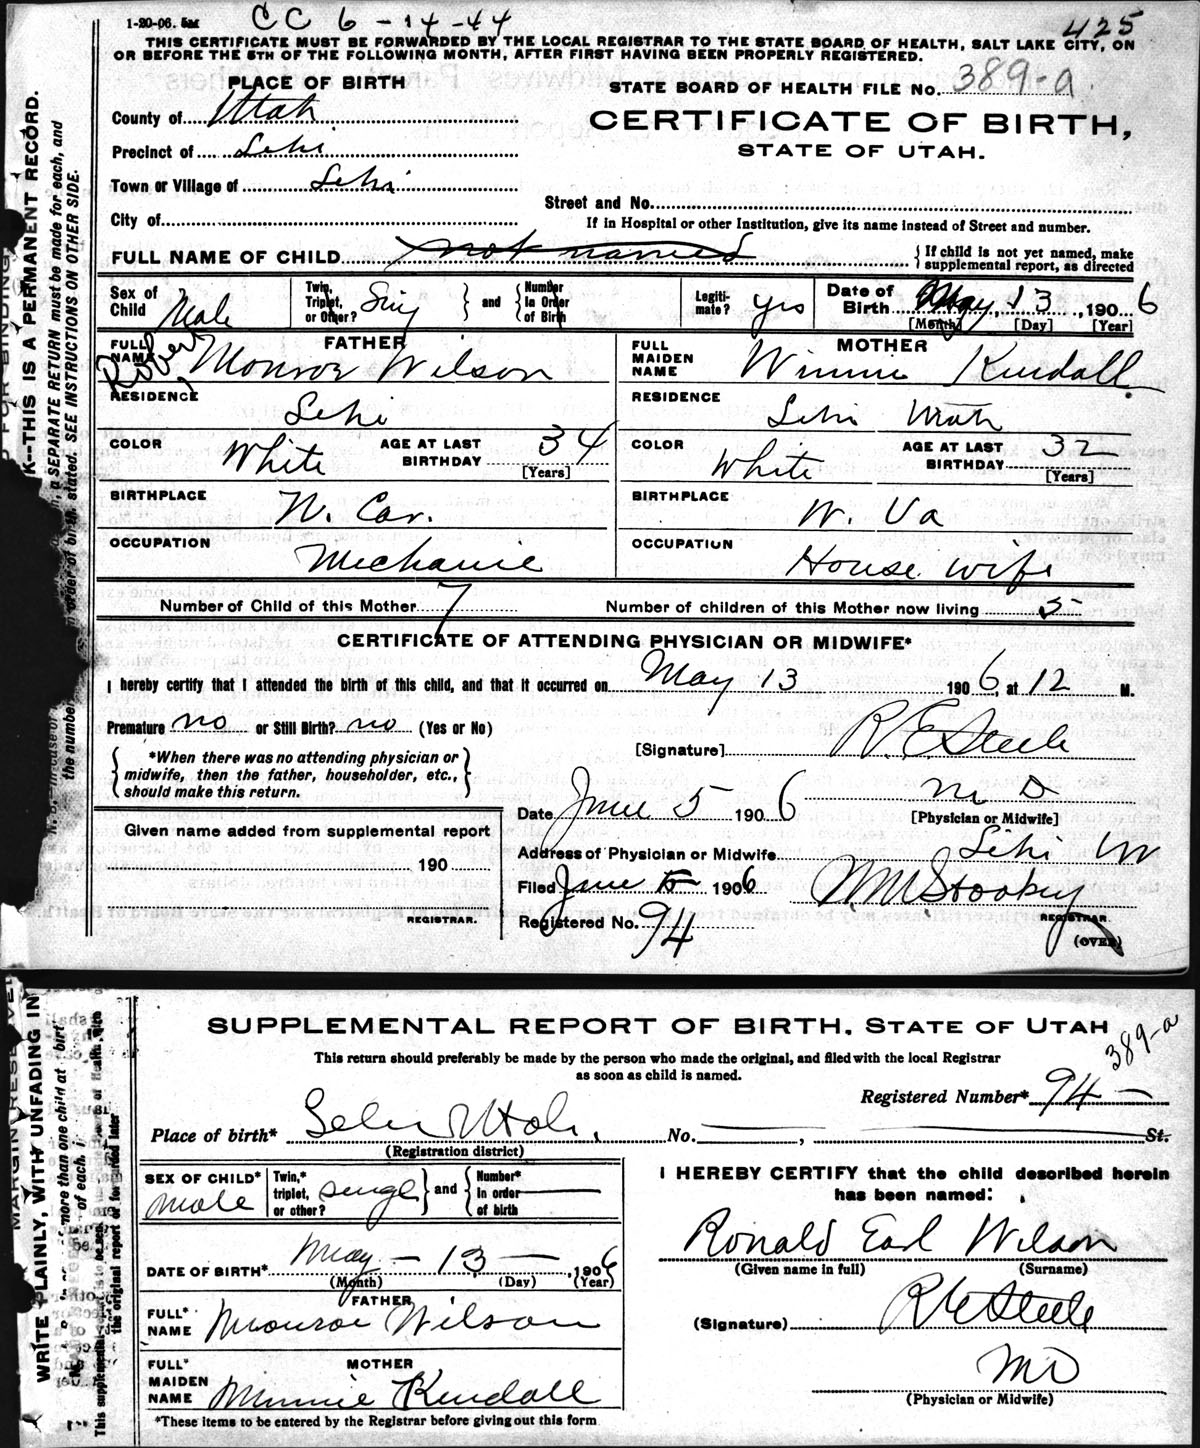 1-20-06. 5M CC 6-14-44 425
THIS CERTIFICATE MUST BE FORWARDED BY THE LOCAL REGISTRAR TO THE STATE BOARD OF HEALTH, SALT LAKE CITY, ON
OR BEFORE THE 5TH OF THE FOLLOWING MONTH, AFTER FIRST HAVING BEEN PROPERLY REGISTERED.
PLACE OF BIRTH
STATE BOARD OF HEALTH FILE No. 389-a
County of Utah
CERTIFICATE OF BIRTH,
STATE OF UTAH.
Precinct of Lehi
Town or Village of Lehi
Street and No.
City of
If in Hospital or other Institution, give its name instead of Street and number.
FULL NAME OF CHILD not named { If child is not yet named, make supplemental report, as directed
Sex of Child Male Twin, Triplet, or Other? Sing } and { Number in Order of Birth Legiti-mate? yes Date of Birth May 13, 1906 [Month] [Day] [Year]
FATHER
FULL NAME Robert Monroe Wilson
MOTHER
FULL MAIDEN NAME Winnie Kendall
RESIDENCE Lehi
RESIDENCE Lehi Utah
COLOR White AGE AT LAST BIRTHDAY 34 [Years]
COLOR White AGE AT LAST BIRTHDAY 32 [Years]
BIRTHPLACE N. Car.
BIRTHPLACE W. Va
OCCUPATION Mechanic
OCCUPATION House wife
Number of Child of this Mother 7 Number of children of this Mother now living 5
CERTIFICATE OF ATTENDING PHYSICIAN OR MIDWIFE*
I hereby certify that I attended the birth of this child, and that it occurred on May 13 1906, at 12 M.
Premature no or Still Birth? no (Yes or No)
[Signature] R. E. Steele
{ *When there was no attending physician or midwife, then the father, householder, etc., should make this return. }
M D
Date June 5 1906 [Physician or Midwife]
Given name added from supplemental report
190
REGISTRAR.
Address of Physician or Midwife Lehi Ut
Filed June 5 1906 W M Stookey
REGISTRAR
Registered No. 94
(OVER)
K--THIS IS A PERMANENT RECORD.
a SEPARATE RETURN must be made for each, and
order of birth stated. SEE INSTRUCTIONS ON OTHER SIDE.
SUPPLEMENTAL REPORT OF BIRTH, STATE OF UTAH
389-a
This return should preferably be made by the person who made the original, and filed with the local Registrar
as soon as child is named.
Registered Number* 94
Place of birth* Lehi Utah. No. , St.
(Registration district)
SEX OF CHILD* male Twin,* triplet, or other? single } and { Number* in order of birth
DATE OF BIRTH* May - 13 - , 1906
(Month) (Day) (Year)
FATHER
FULL* NAME Monroe Wilson
MOTHER
FULL* MAIDEN NAME Minnie Kendall
*These items to be entered by the Registrar before giving out this form
I HEREBY CERTIFY that the child described herein
has been named:
Ronald Earl Wilson
(Given name in full) (Surname)
(Signature) R E Steele
MD
(Physician or Midwife)
WRITE PLAINLY, WITH UNFADING IN
more than one child at birth
the original report forwarded later